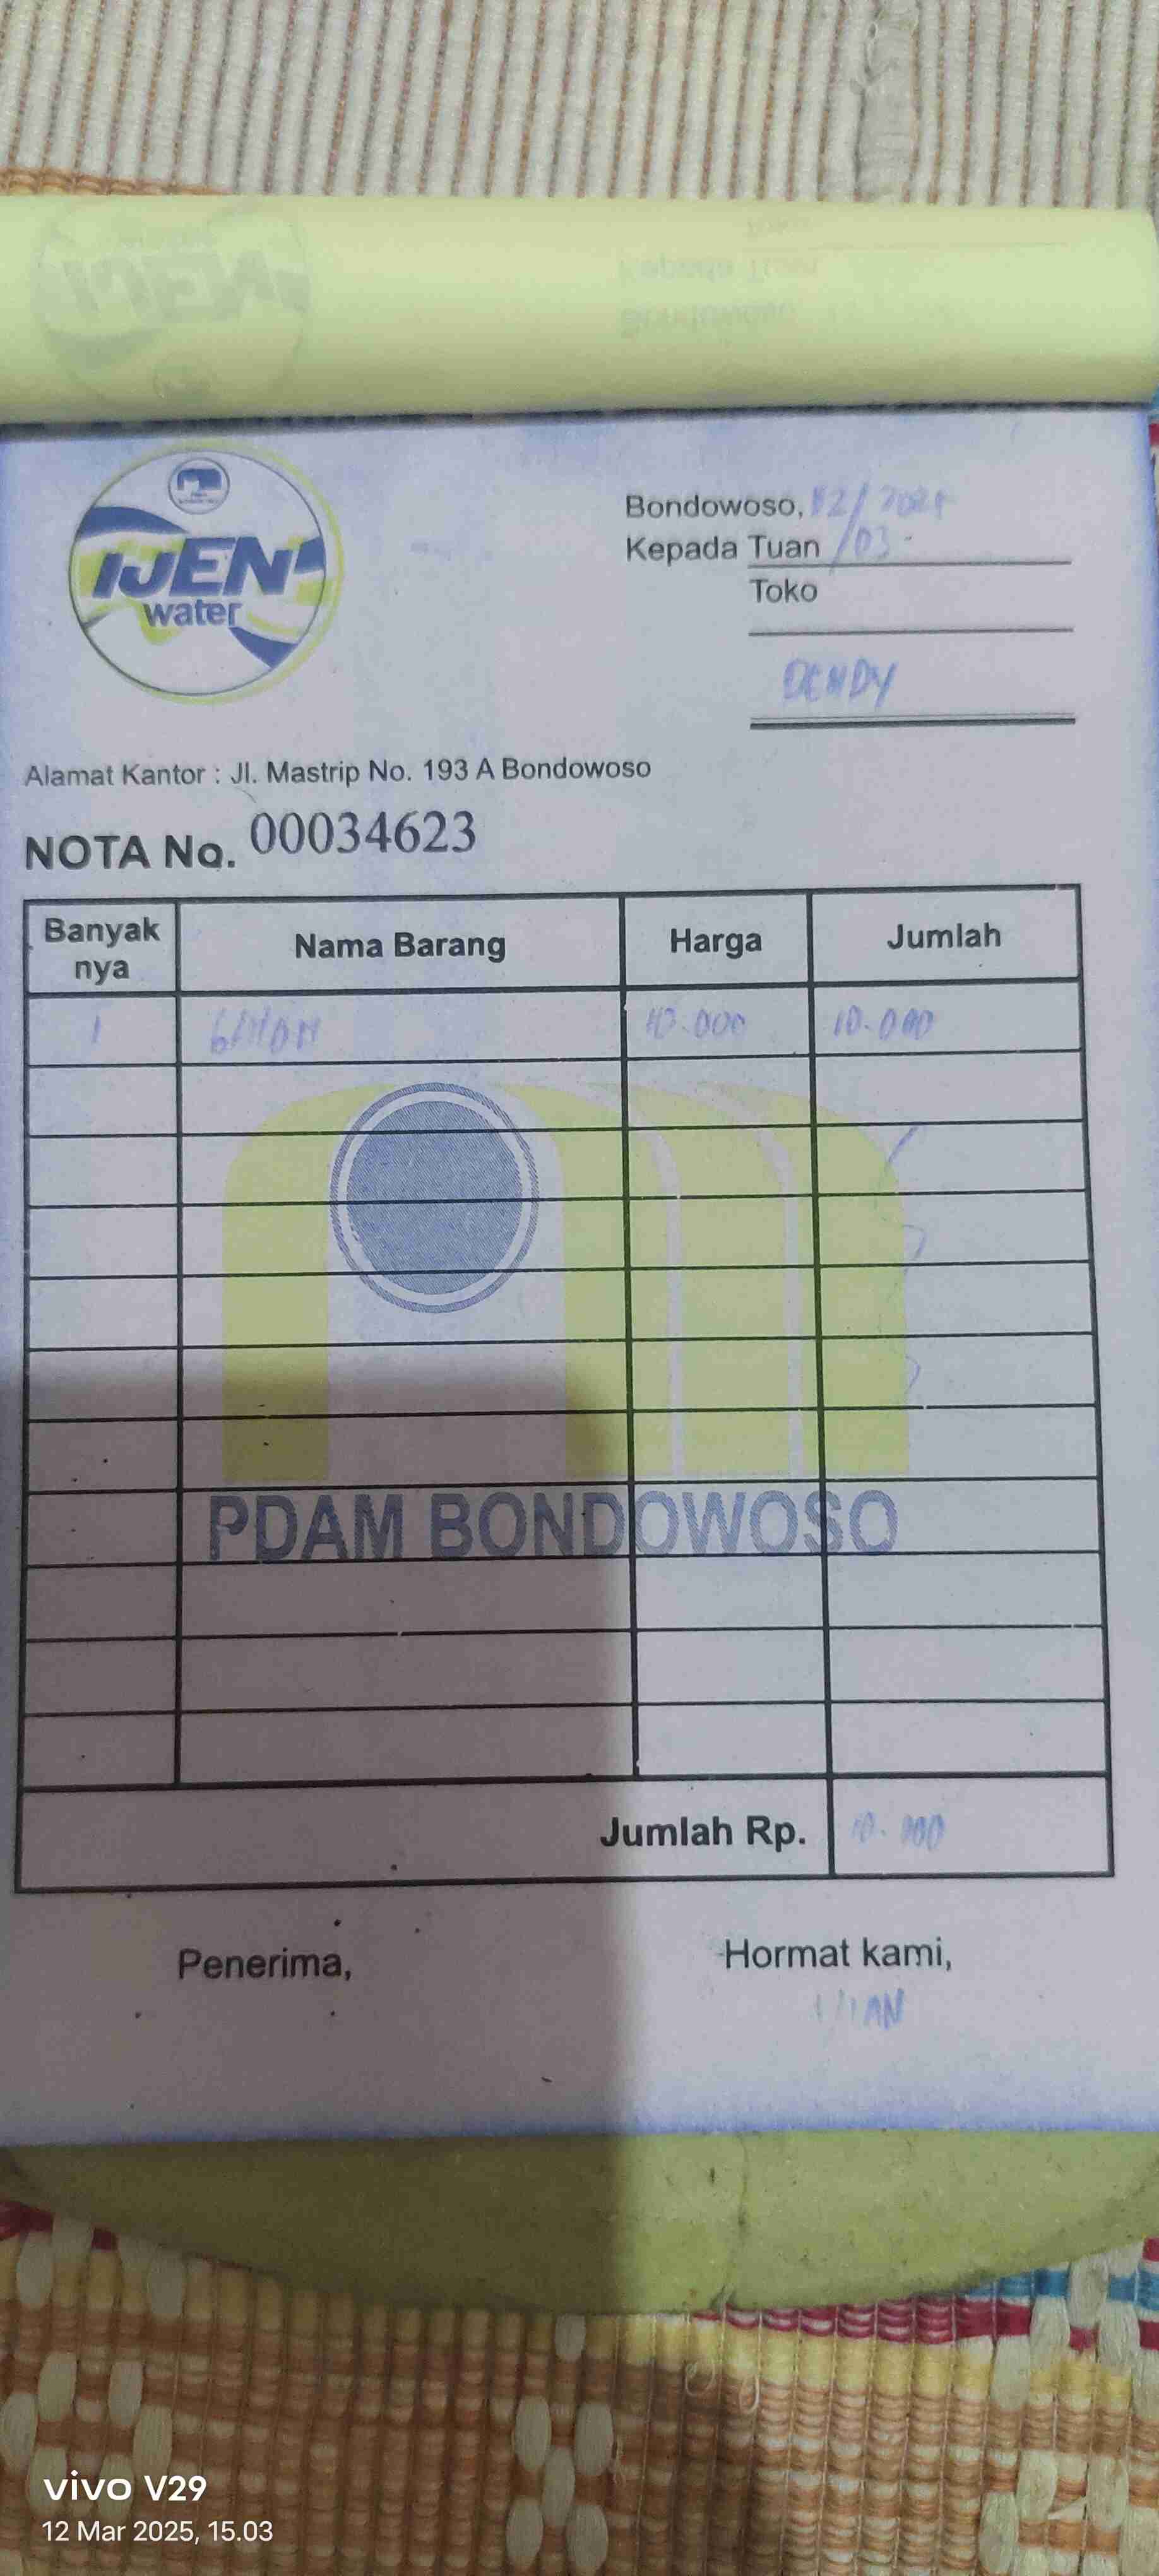 IJEN
water
Bondowoso, 12/03 2025
Kepada Tuan
Toko
DENDY
Alamat Kantor : Jl. Mastrip No. 193 A Bondowoso
NOTA No. 00034623
Banyak nya Nama Barang Harga Jumlah
1 10.000 10.000
PDAM BONDOWOSO
Jumlah Rp. 10.000
Penerima, Hormat kami,
vivo V29
12 Mar 2025, 15.03